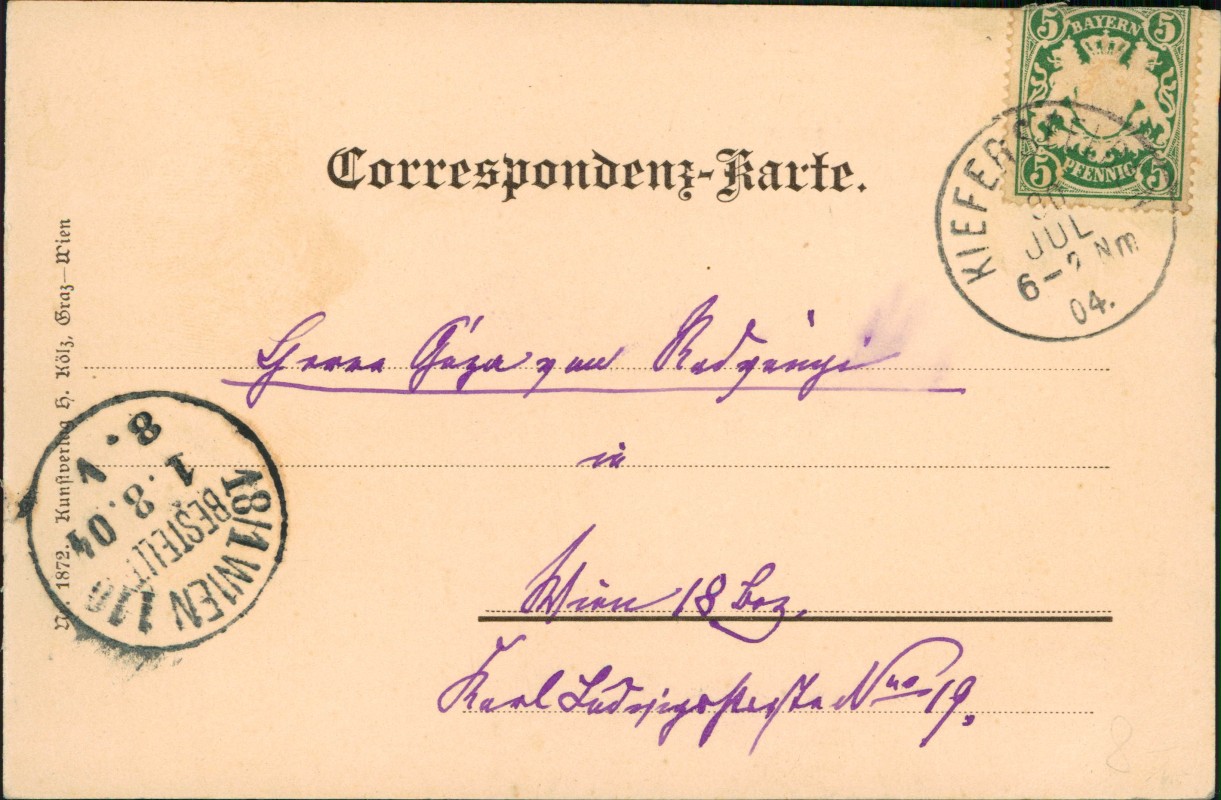 5 BAYERN 5
5 PFENNIG 5
Correspondenz-Karte.
KIEFERS
30
JUL
6-7 Nm
04.
Herrn Géza von Radványi
in
Wien 18 Bez.
Karl Ludwigstraße Nro 19.
18/1 WIEN 110
BESTELLT
1.8.04
8.1
No. 1872. Kunstverlag H. Kölz, Graz—Wien
8